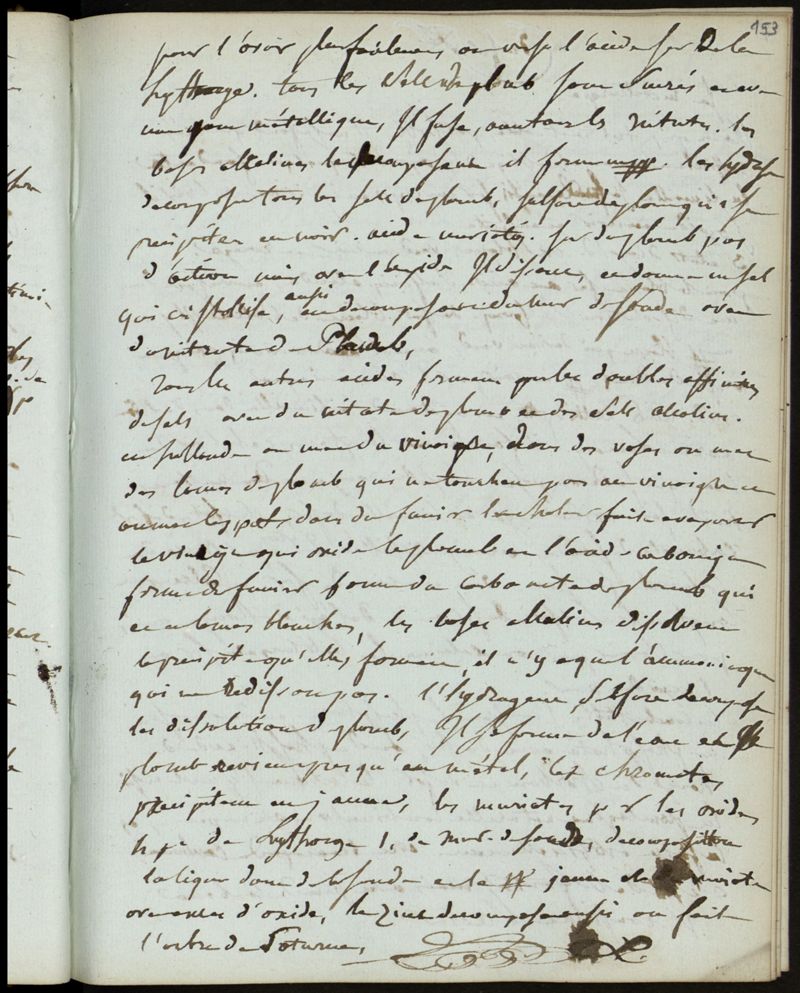 153
pour l'avoir plus facilement on verse l'acide sur de la
Lythrage. tous les sels de plomb sont sucrés avec
un gout métallique, Il fuse, avec les nitrates. les
bases alkalines le décomposent il forme un pp. les hydros
decompose tous les sels de plomb, sulfure de plomb qui se
précipiter en noir. acide muriatiq. sur le plomb pas
d'action mais avec l'oxide Il dissout, en donne un sel
qui cristallise, aussi en decomposant du mur de soude avec
du nitrate de Plomb,
tous les autres acides forment par les doubles affinités
des sels avec du nitrate de plomb et des sels alkalins.
en hollande on met du vinaigre, dans des vases on met
des lames de plomb qui ne touchent pas au vinaigre et
on met les pots dans du fumier la chaleur fait evaporer
le vinaigre qui oxide le plomb et l'acide carbonique
formé de fumier forme du carbonate de plomb qui
en lames blanches, les bases alkalines disolvent
le précipité qu'elles forment, il n'y a que l'ammoniaque
qui ne redissout pas. l'hydrogene sulfuré decompose
les dissolutions de plomb, Il se forme de l'eau et le
plomb revient presqu'au métal, les chromates
précipitent en jaune, les muriates par les oxides
de Lythrage 1, de mur. de soude, decomposition
la liqueur donne de la soude et le pp jaune et le muriate
avec exces d'oxide, le zinc decompose aussi on fait
l'arbre de Saturne,